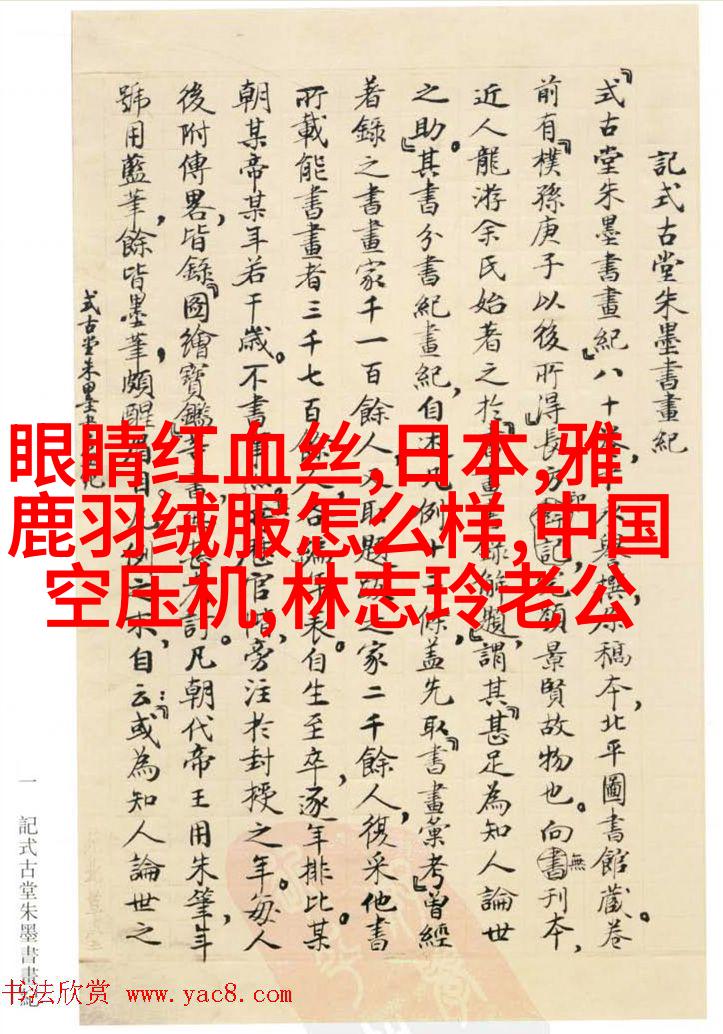 記式古堂朱墨書畫紀
『式古堂朱墨書畫紀』八十卷,永譽撰,稿本,北平圖書館藏。卷
前有『樸孫庚子以後所得』長方印記,完顏景賢故物也。向無刊本,
近人龍游余氏始著之於『書畫書錄解題』,謂其『甚足為知人論世
之助』。其書分書紀畫紀,自述凡例十條,蓋先取『書畫彙考』曾經
著錄之書畫家千一百餘人,取題跋之家二千餘人,復采他書
所載能書畫者三千七百餘人,各編年表。自生至卒,逐年排比某
朝某帝某年若干歲。不書官階,旁注於封授之年。每人
後附傳畧,皆錄『圖繪寶鑑』等書訂。凡朝代帝王用朱筆,年
號用藍筆,餘皆墨筆,頗醒眉目。凡例之末自云:『或為知人論世之
式古堂朱墨書畫紀
一
記式古堂朱墨書畫紀
眼睛红血丝,日本,雅
鹿羽绒服怎么样,中国
空压机,林志玲老公
书法欣赏 www.yac8.com